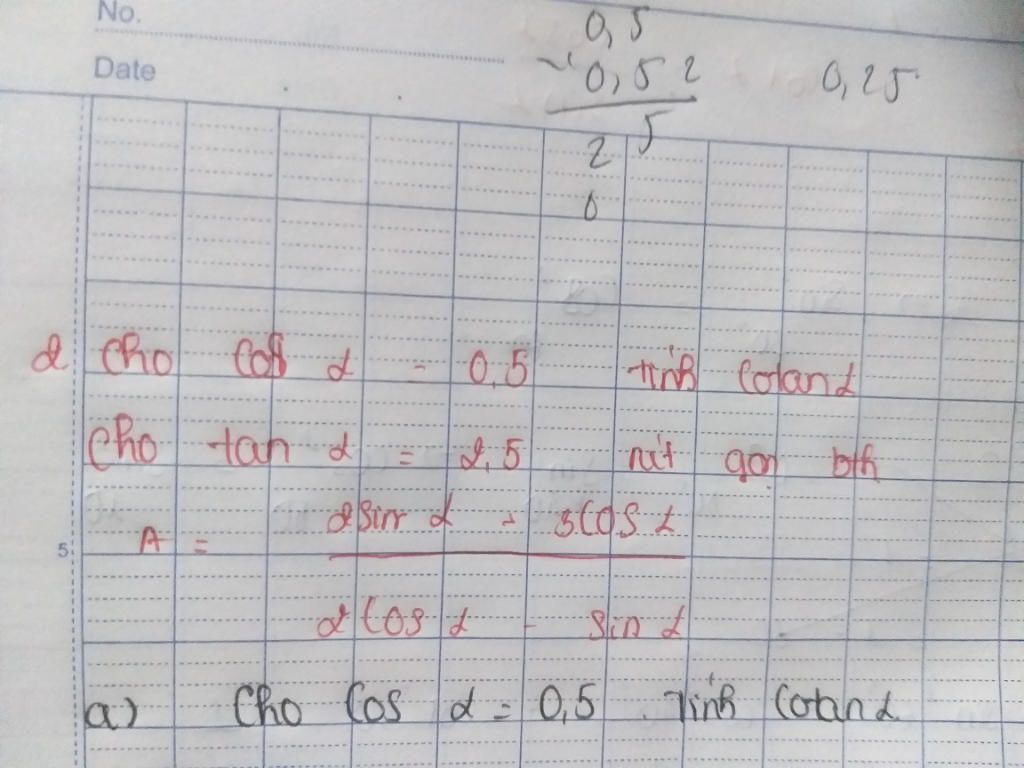 No.
Date
0,5
0,52 0,25
2 5
0
2 Cho Cos α = 0,5 tính Cotan α
Cho tan α = 2,5 rút gọn bth
A = 2 Sin α + 3 Cos α
2 Cos α - Sin α
5
a) Cho Cos α = 0,5 Tính Cotan α